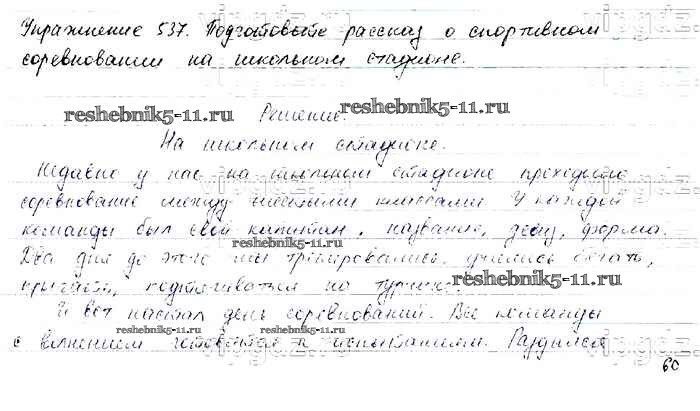 Упражнение 537. Подготовьте рассказ о спортивном
соревновании на школьном стадионе.
reshebnik5-11.ru Решение. reshebnik5-11.ru
На школьном стадионе.
Недавно у нас на школьном стадионе проходило
соревнование между шестыми классами. У каждой
команды был свой капитан, название, девиз, форма.
reshebnik5-11.ru
Два дня до этого мы тренировались, учились бегать,
прыгать, подтягиваться на турнике.
reshebnik5-11.ru
И вот настал день соревнований. Все команды
reshebnik5-11.ru reshebnik5-11.ru
с волнением готовятся к испытаниям. Раздился
60